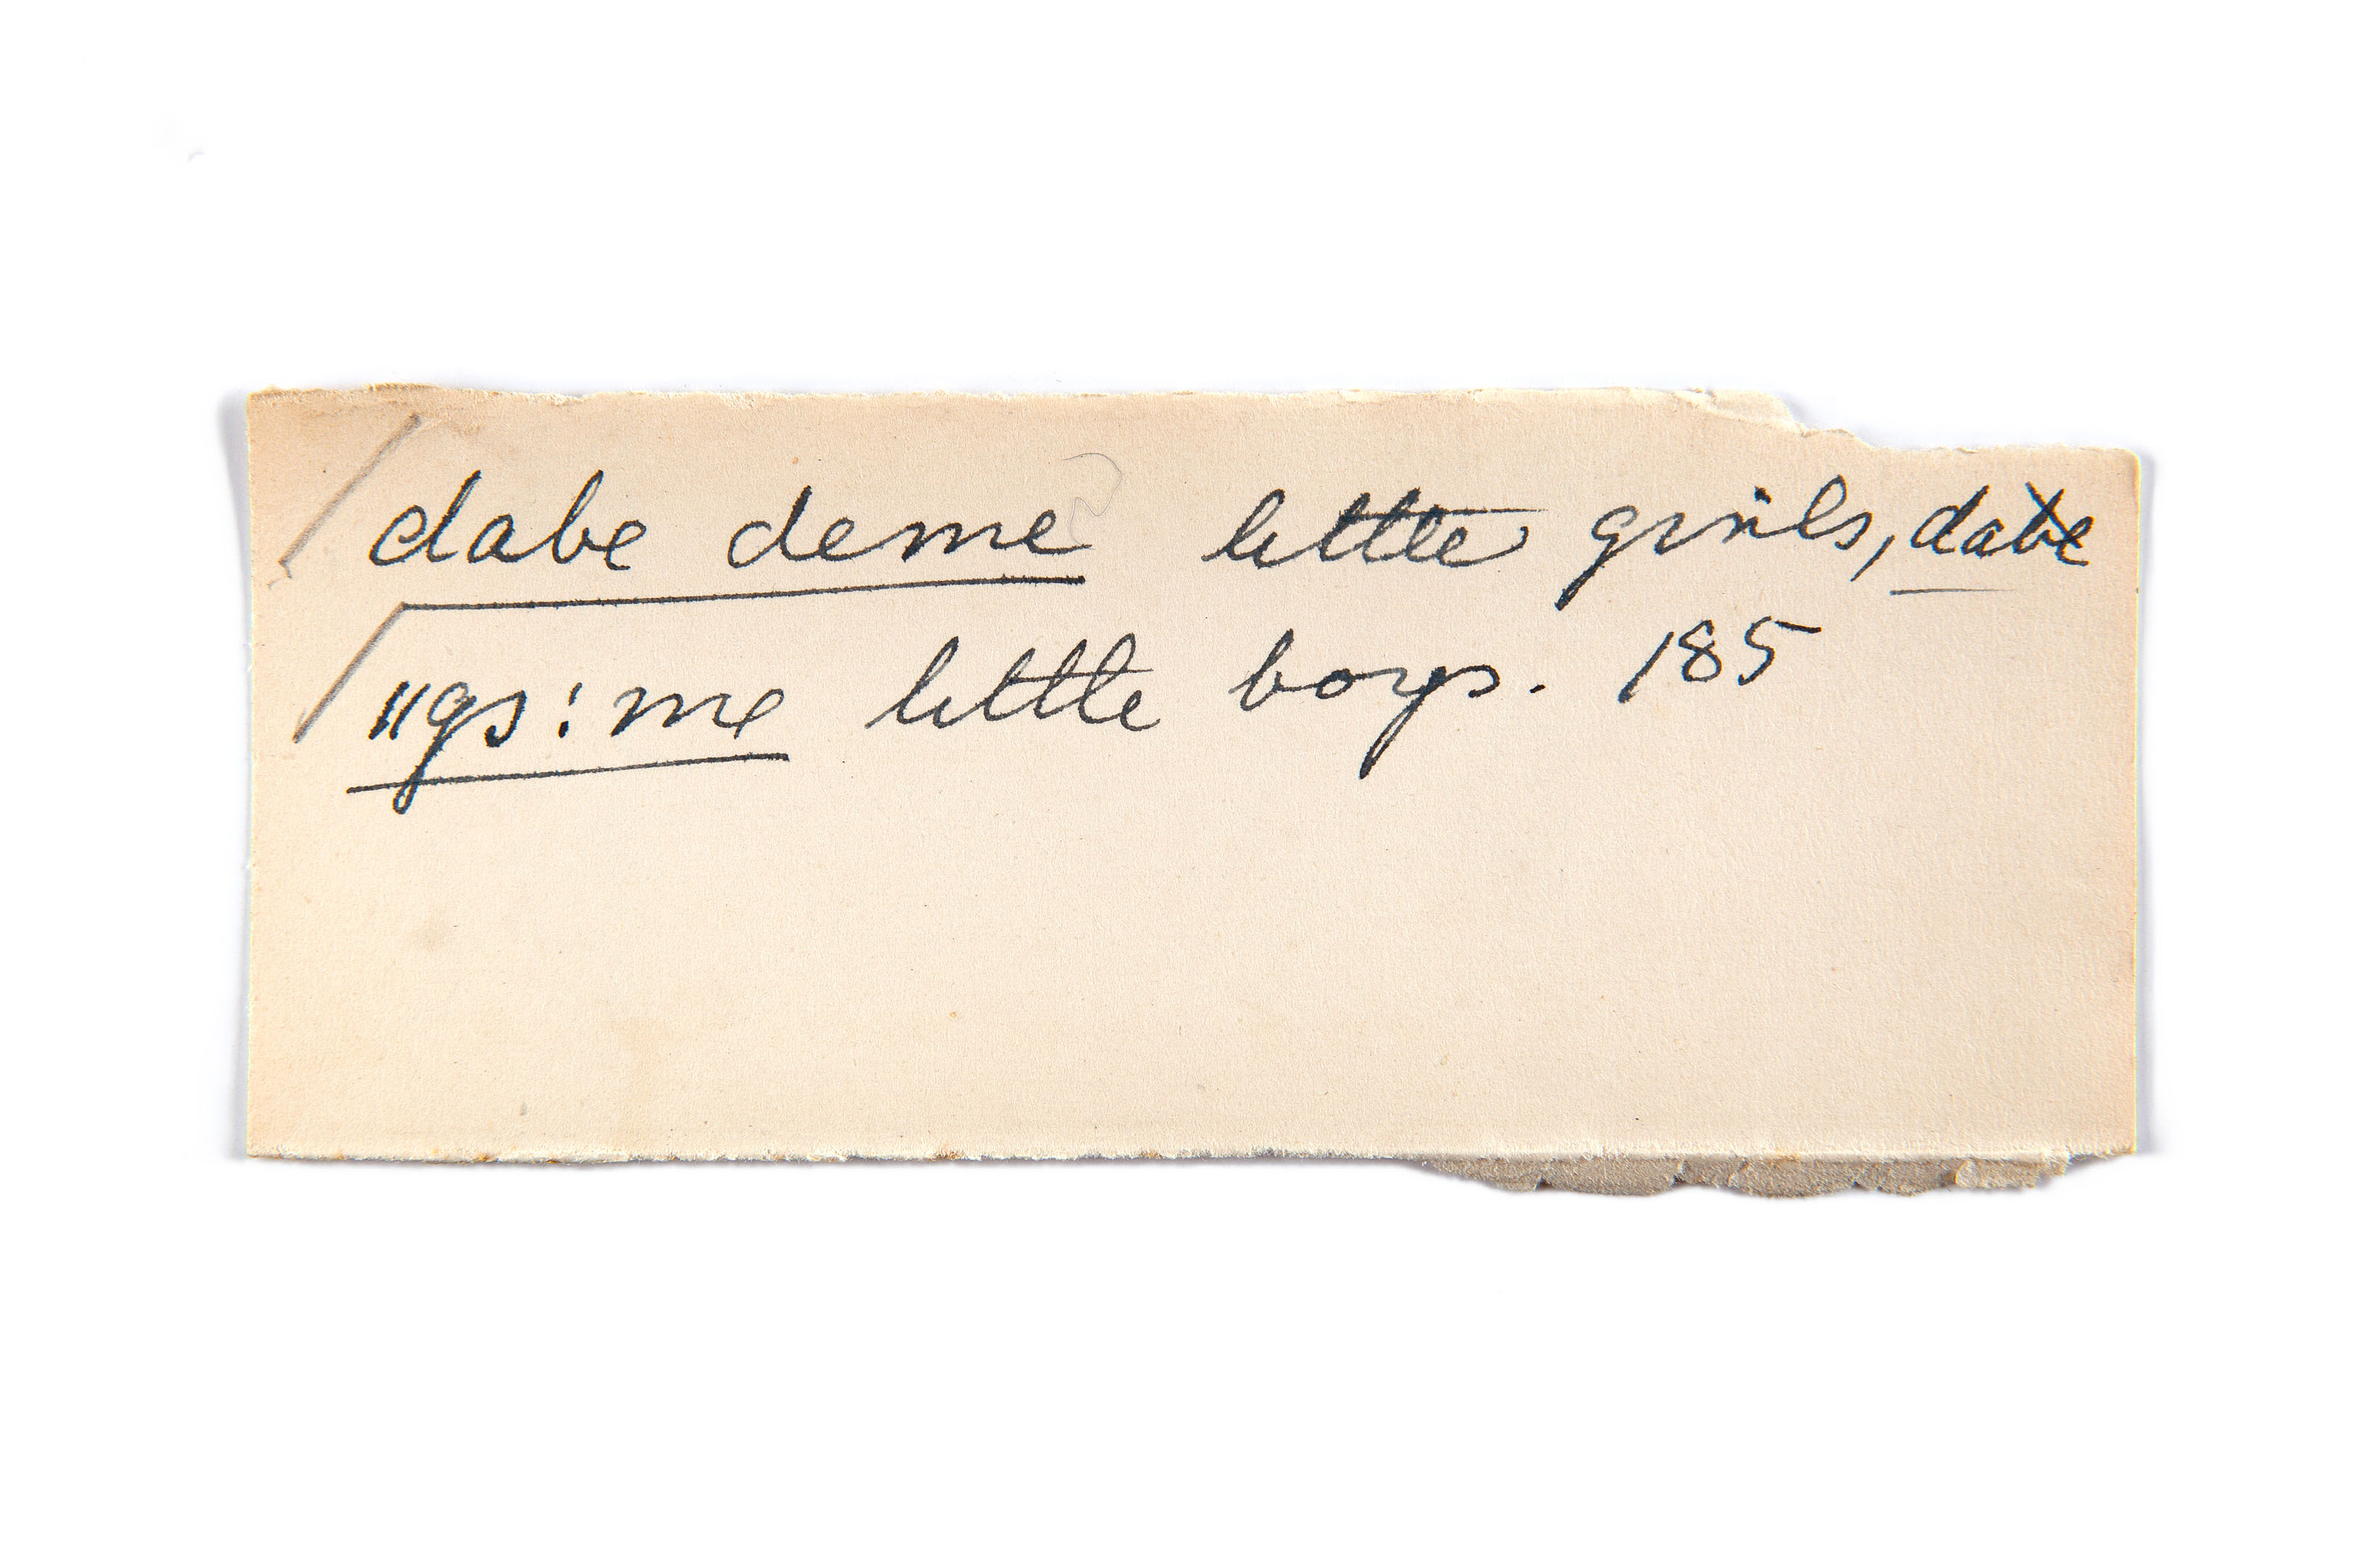 dabe deme little girls, dabe
"gs! me little boys. 185